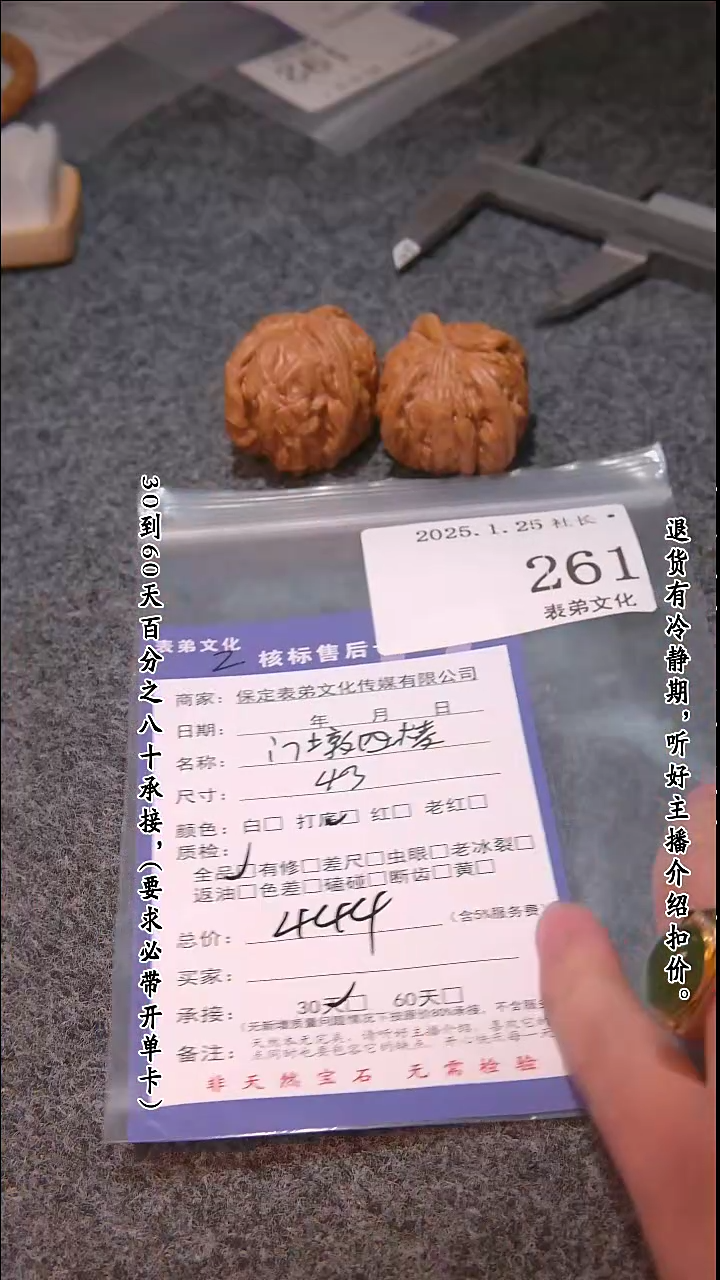 261
2025.1.25 社长
261
表弟文化
表弟文化
2 核标售后
商家：保定表弟文化传媒有限公司
日期： 年 月 日
名称：门墩四棱
尺寸：43
颜色：白□ 打底□ 红□ 老红□
质检：
全品□有修□差尺□虫眼□老冰裂□
返油□色差□磕碰□断齿□黄□
总价：444（含5%服务费）
买家：
承接：30天□ 60天□
（无新增质量问题情况下按原价80%承接，不含服
备注：天然本无完美，请听好主播介绍，喜欢它
非天然宝石 无需检验
30到60天百分之八十承接，（要求必带开单卡）
退货有冷静期，听好主播介绍扣价。